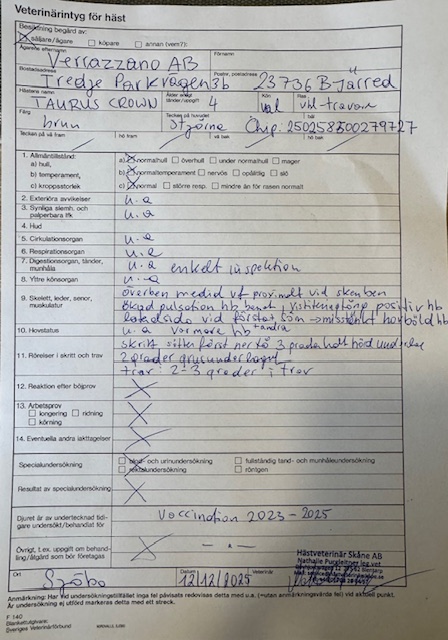 Veterinärintyg för häst
Besiktning begärd av:
säljare/ägare köpare annan (vem?):
Ägarens efternamn Förnamn
Verrazzano AB
Bostadsadress Postnr, postadress
Tredje Parkvägen 3b 23736 Bjärred
Hästens namn Ålder enligt tänder/uppgift Kön Ras
TAURUS CROWN 4 val vbl-travare
Färg Tecken på huvudet
brun Stjärna Chip: 250258500279727
Tecken på vä fram hö fram vä bak hö bak
1. Allmäntillstånd:
a) hull, a) normalhull överhull under normalhull mager
b) temperament, b) normaltemperament nervös opålitlig slö
c) kroppsstorlek c) normal större resp. mindre än för rasen normalt
2. Exteriöra avvikelser u. a
3. Synliga slemh. och palperbara lfk u. a
4. Hud
5. Cirkulationsorgan u. a
6. Respirationsorgan u. a
7. Digestionsorgan, tänder, munhåla u. a enkelt inspektion
8. Yttre könsorgan u. a
9. Skelett, leder, senor, muskulatur
överben medid vf proximalt vid skenben
ökad pulsation hb benet, visiteringtång positiv hb
misstänkt hovböld hb
10. Hovstatus u. a varmare hb
11. Rörelser i skritt och trav
skritt 3 grader halt
2 grader grusunderlaget
trav: 2-3 grader i trav
12. Reaktion efter böjprov
13. Arbetsprov
longering ridning
körning
14. Eventuella andra iakttagelser
Specialundersökning
blod- och urinundersökning fullständig tand- och munhåleundersökning
rektalundersökning röntgen
Resultat av specialundersökning
Djuret är av undertecknad tidigare undersökt/behandlat för
Vaccination 2023 - 2025
Övrigt, t.ex. uppgift om behandling/åtgärd som bör företagas
Hästveterinär Skåne AB
Nathalie Purgleitner leg vet
Ort Datum Veterinär
Sjöbo 12/12/2025
Anmärkning: Har vid undersökningstillfället inga fel påvisats redovisas detta med u.a. (=utan anmärkningsvärda fel) vid aktuell punkt.
Är undersökning ej utförd markeras detta med ett streck.
F 140
Blankettutgivare:
Sveriges Veterinärförbund